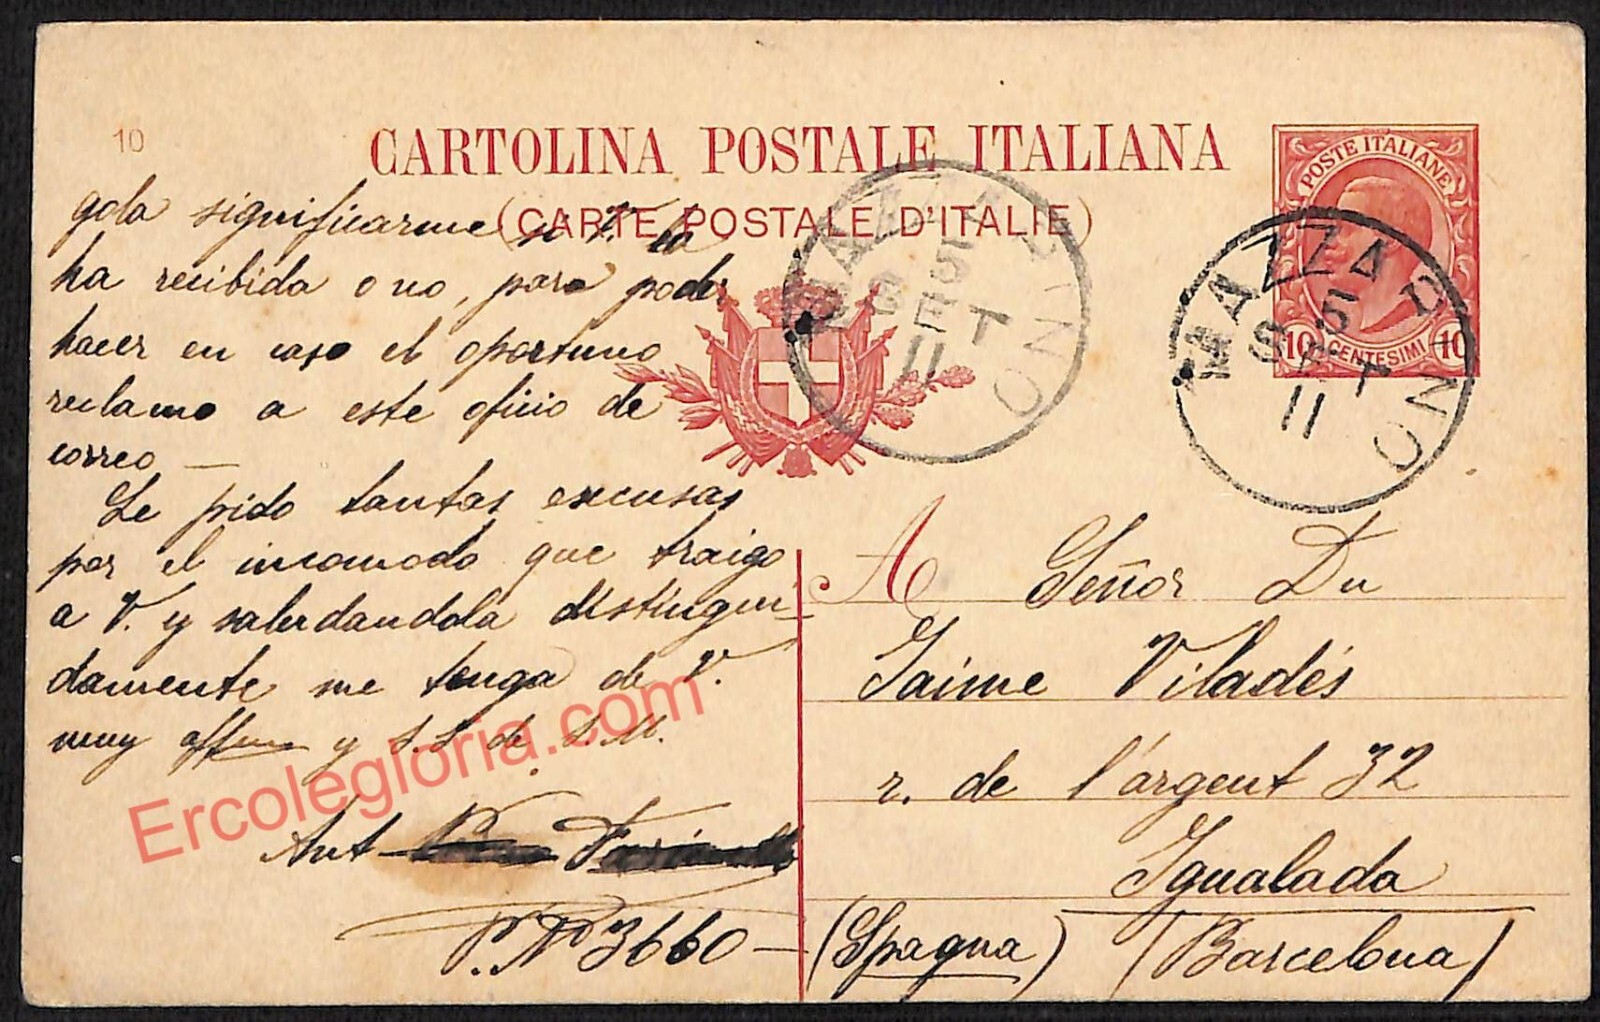 10
CARTOLINA POSTALE ITALIANA
(CARTE POSTALE D'ITALIE)
POSTE ITALIANE
10 CENTESIMI 10
MAZZA D PINO
5
SET
11
MAZZA D PINO
5
SET
11
gola significarme si V. la
ha recibida o no, para poder
hacer en caso el oportuno
reclamo a este oficio de
correo —
Le pido tantas excusas
por el incomodo que traigo
a V. y saludandola distingui-
damente me tenga de V.
muy affmo y S.S. de S.M.
Ant
P.N° 3660 —
A Señor Dn
Jaime Viladés
r. de l'árgent 32
Igualada
(Spagna) (Barcelona)
Ercolegloria.com